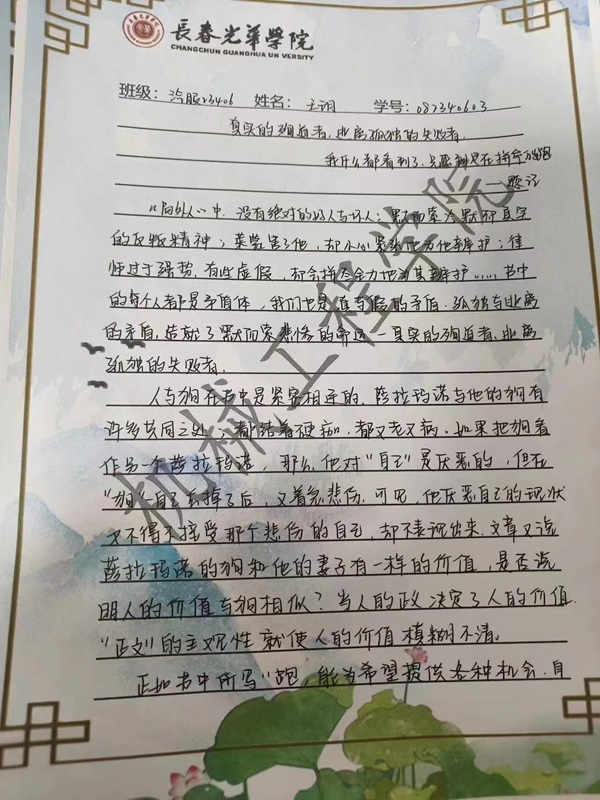 長春光華學院
CHANGCHUN GUANGHUA UNIVERSITY
班级：汽服23406 姓名：王玥 学号：087340603
真实的殉道者，逃离孤独的失败者.
我什么都看到了.只愿神足在拼命的跑
——题记
《局外人》中，没有绝对的好人与坏人：默而索冷默却真实
的反叛精神；莱蒙害了他，却小心紧张地为他辩护；律
师过于强势，有些虚假，却会拼尽全力地为其辩护……书中
的每个人都是矛盾体，我们也是.真与假的矛盾.孤独与逃离
的矛盾.造就了默而索悲惨的命运—真实的殉道者，逃离
孤独的失败者.
人与狗在书中是紧密相连的，萨拉玛诺与他的狗有
许多共同之处，都结着硬痂，都又老又病.如果把狗看
作另一个萨拉玛诺，那么他对“自己”是厌恶的，但在
“狗”自己丢掉了后，又着急悲伤.可见，他厌恶自己的现状
又不得不接受那个悲伤的自己，却不表现出来.文章又说
萨拉玛诺的狗和他的妻子有一样的价值，是否说
明人的价值与狗相似？当人的政决定了人的价值.
“正文”的主观性就使人的价值模糊不清.
正如书中所写“跑，能为希望提供各种机会.自
机械工程学院